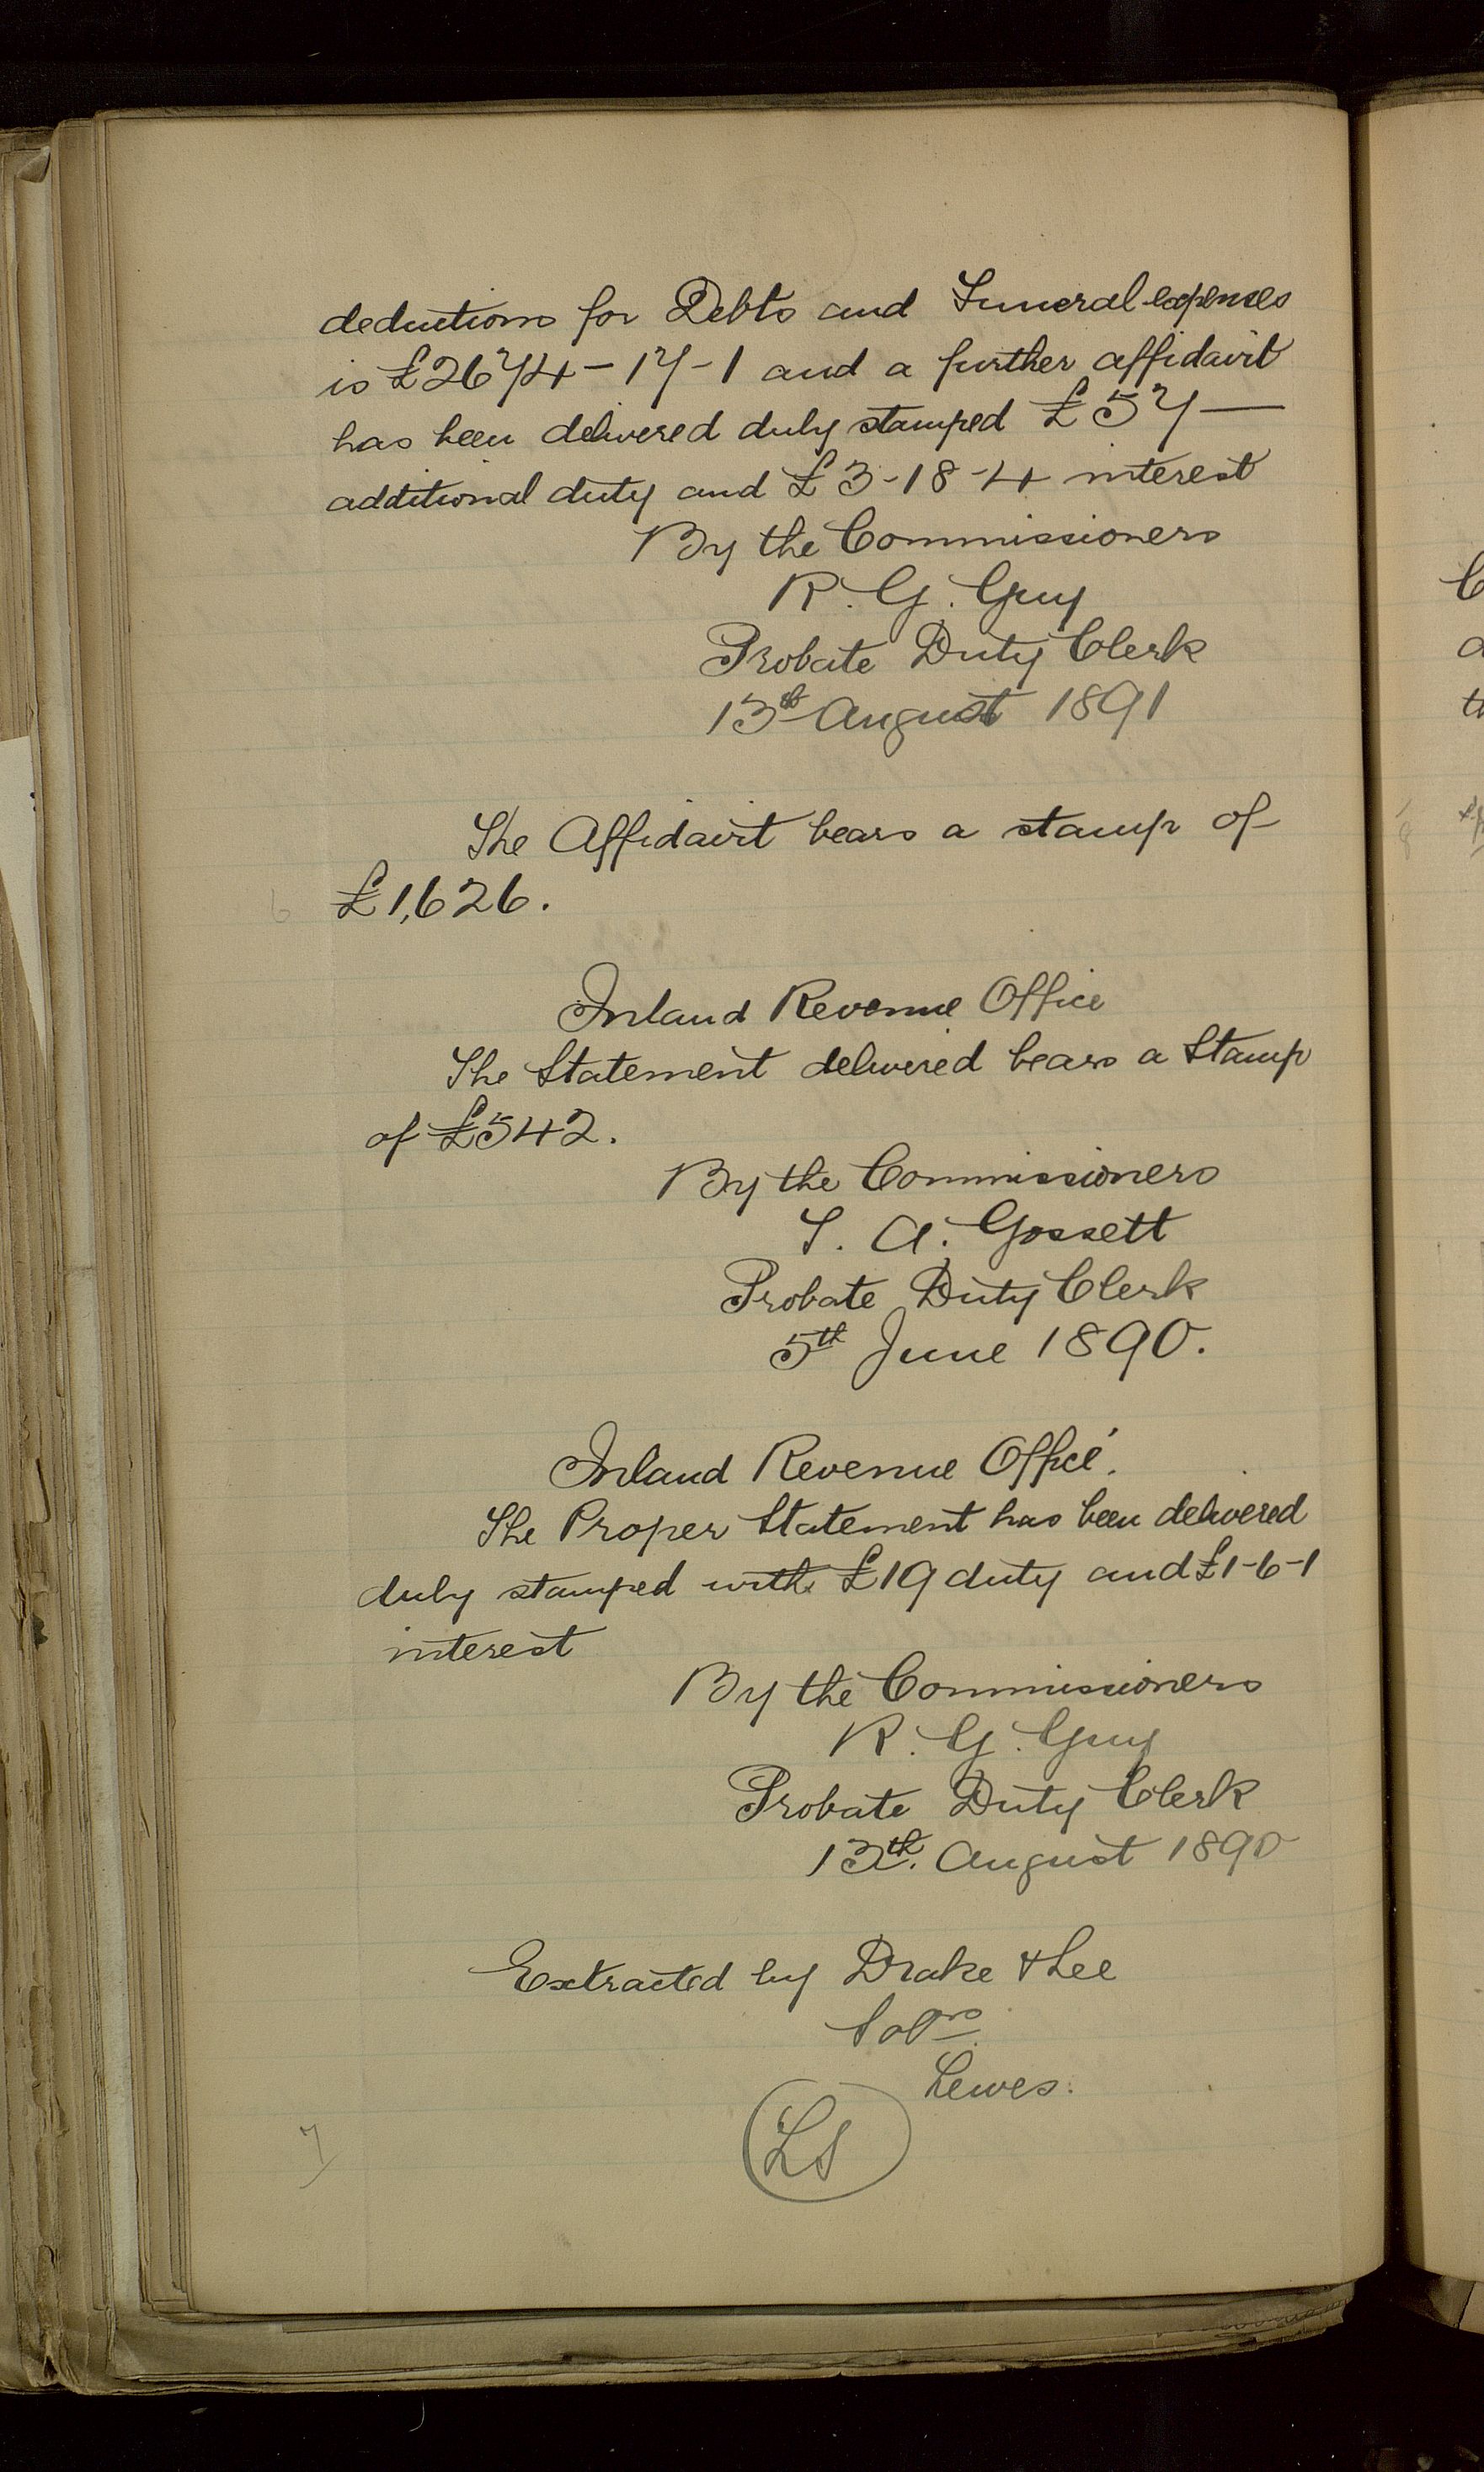 deductions for Debts and Funeral expenses
is £2674-17-1 and a further affidavit
has been delivered duly stamped £57 —
additional duty and £3-18-4 interest
By the Commissioners
R. G. Guy
Probate Duty Clerk
13th August 1891
The Affidavit bears a stamp of
6 £1,626.
Inland Revenue Office
The Statement delivered bears a Stamp
of £542.
By the Commissioners
T. A. Gossett
Probate Duty Clerk
5th June 1890.
Inland Revenue Office.
The Proper Statement has been delivered
duly stamped with £19 duty and £1-6-1
interest
By the Commissioners
R. G. Guy
Probate Duty Clerk
13th. August 1890
Extracted by Drake & Lee
Solrs.
Lewes.
LS
7